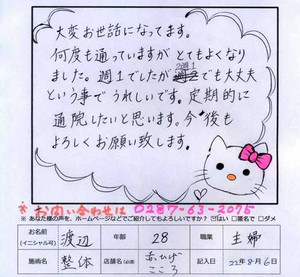 大変お世話になってます。
何度も通っていますが とてもよくなり
ました。週1でしたが 2週1でも大丈夫
という事で うれしいです。定期的に
通院したいと思います。今後も
よろしくお願い致します。
※お問い合わせは 0287-63-2075
※あなた様の声を、ホームページなどでご紹介してもよろしいですか? ☑はい □匿名で □ダメ
お名前
(イニシャル可)
渡辺 年齢 28 職業 主婦
施術名 整体 店舗名(必須) 赤ひげ
こころ 記入日 22年8月6日